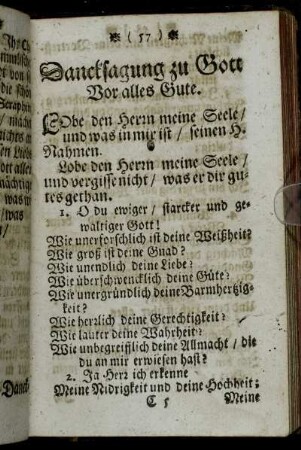 ( 57 )
Dancksagung zu Gott
Vor alles Gute.
LObe den Herrn meine Seele /
und was in mir ist / seinen H.
Nahmen.
Lobe den Herrn meine Seele /
und vergisse nicht / was er dir gu-
tes gethan.
1. O du ewiger / starcker und ge-
waltiger Gott!
Wie unerforschlich ist deine Weißheit?
Wie groß ist deine Gnad?
Wie unendlich deine Liebe?
Wie überschwencklich deine Güte?
Wie unergründlich deine Barmhertzig-
keit?
Wie herzlich deine Gerechtigkeit?
Wie lauter deine Wahrheit?
Wie unbegreifflich deine Allmacht / die
du an mir erwiesen hast?
2. Ja Herr ich erkenne
Meine Nidrigkeit und deine Hochheit;
C 5 Meine